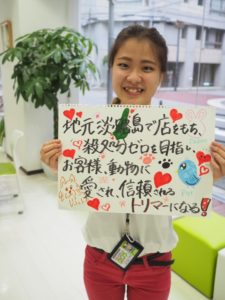 地元淡路島で店をもち、
殺処分ゼロを目指し、
お客様、動物に
愛され、信頼される
トリマーになる!